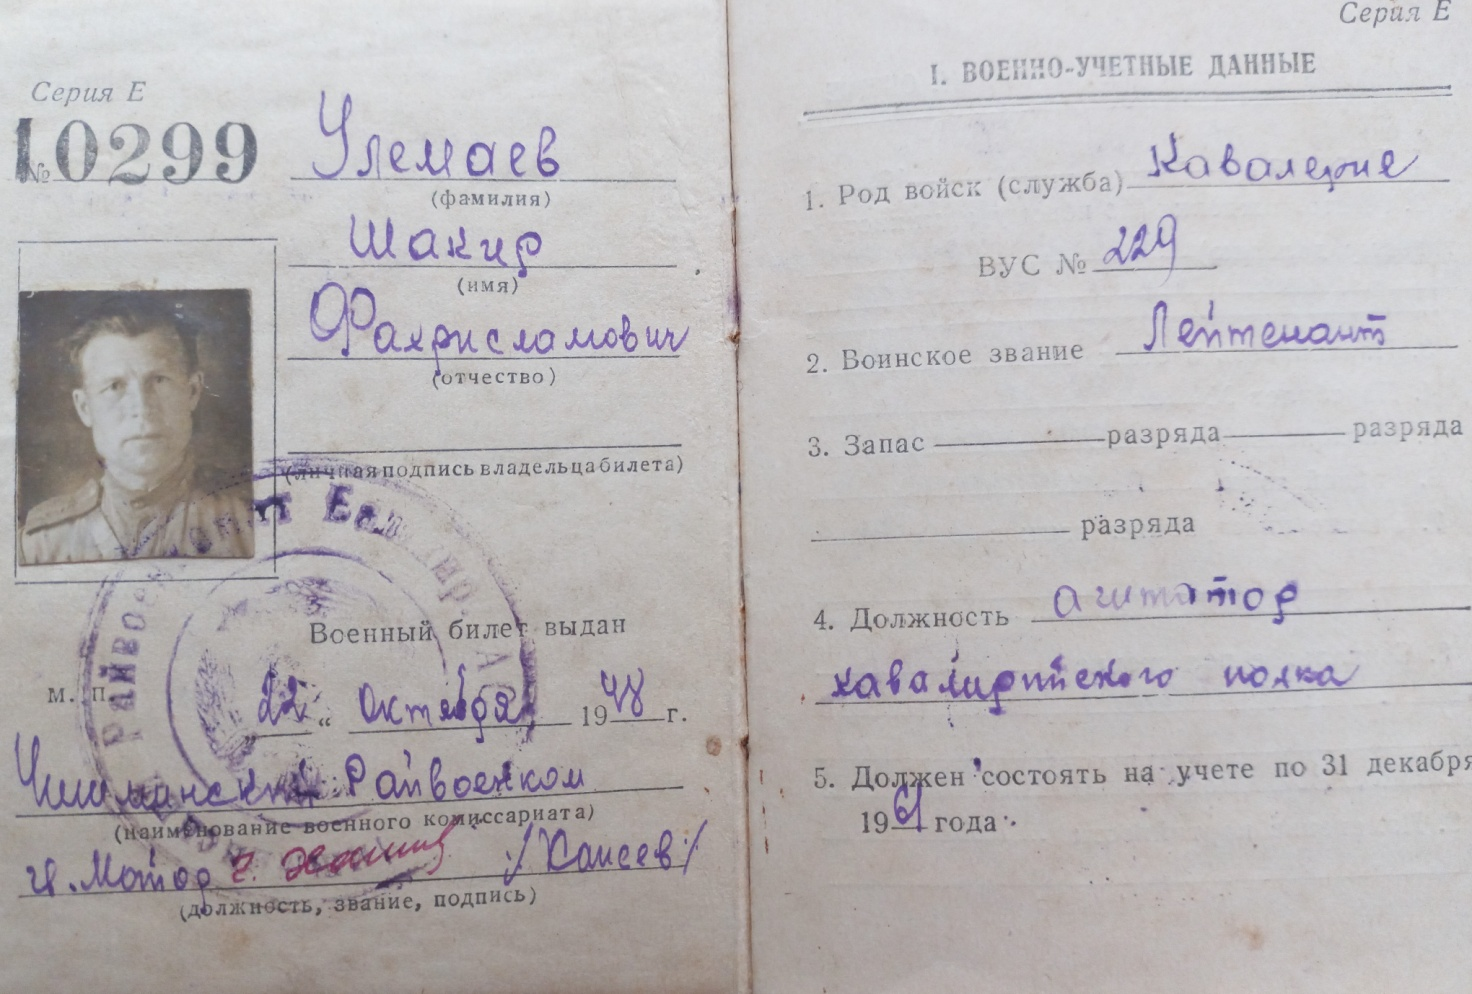 Серия Е
№ 10299
Улемаев
(фамилия)
Шакир
(имя)
Фахрисламович
(отчество)
(личная подпись владельца билета)
Военный билет выдан
м. п.
„22“ Октября 1948 г.
Чишминский Райвоенком
(наименование военного комиссариата)
/Хаисев/
(должность, звание, подпись)
Серия Е
I. ВОЕННО-УЧЕТНЫЕ ДАННЫЕ
1. Род войск (служба) Кавалерие
ВУС № 229
2. Воинское звание Лейтенант
3. Запас разряда разряда
разряда
4. Должность агитатор
кавалирийского полка
5. Должен состоять на учете по 31 декабря
1961 года